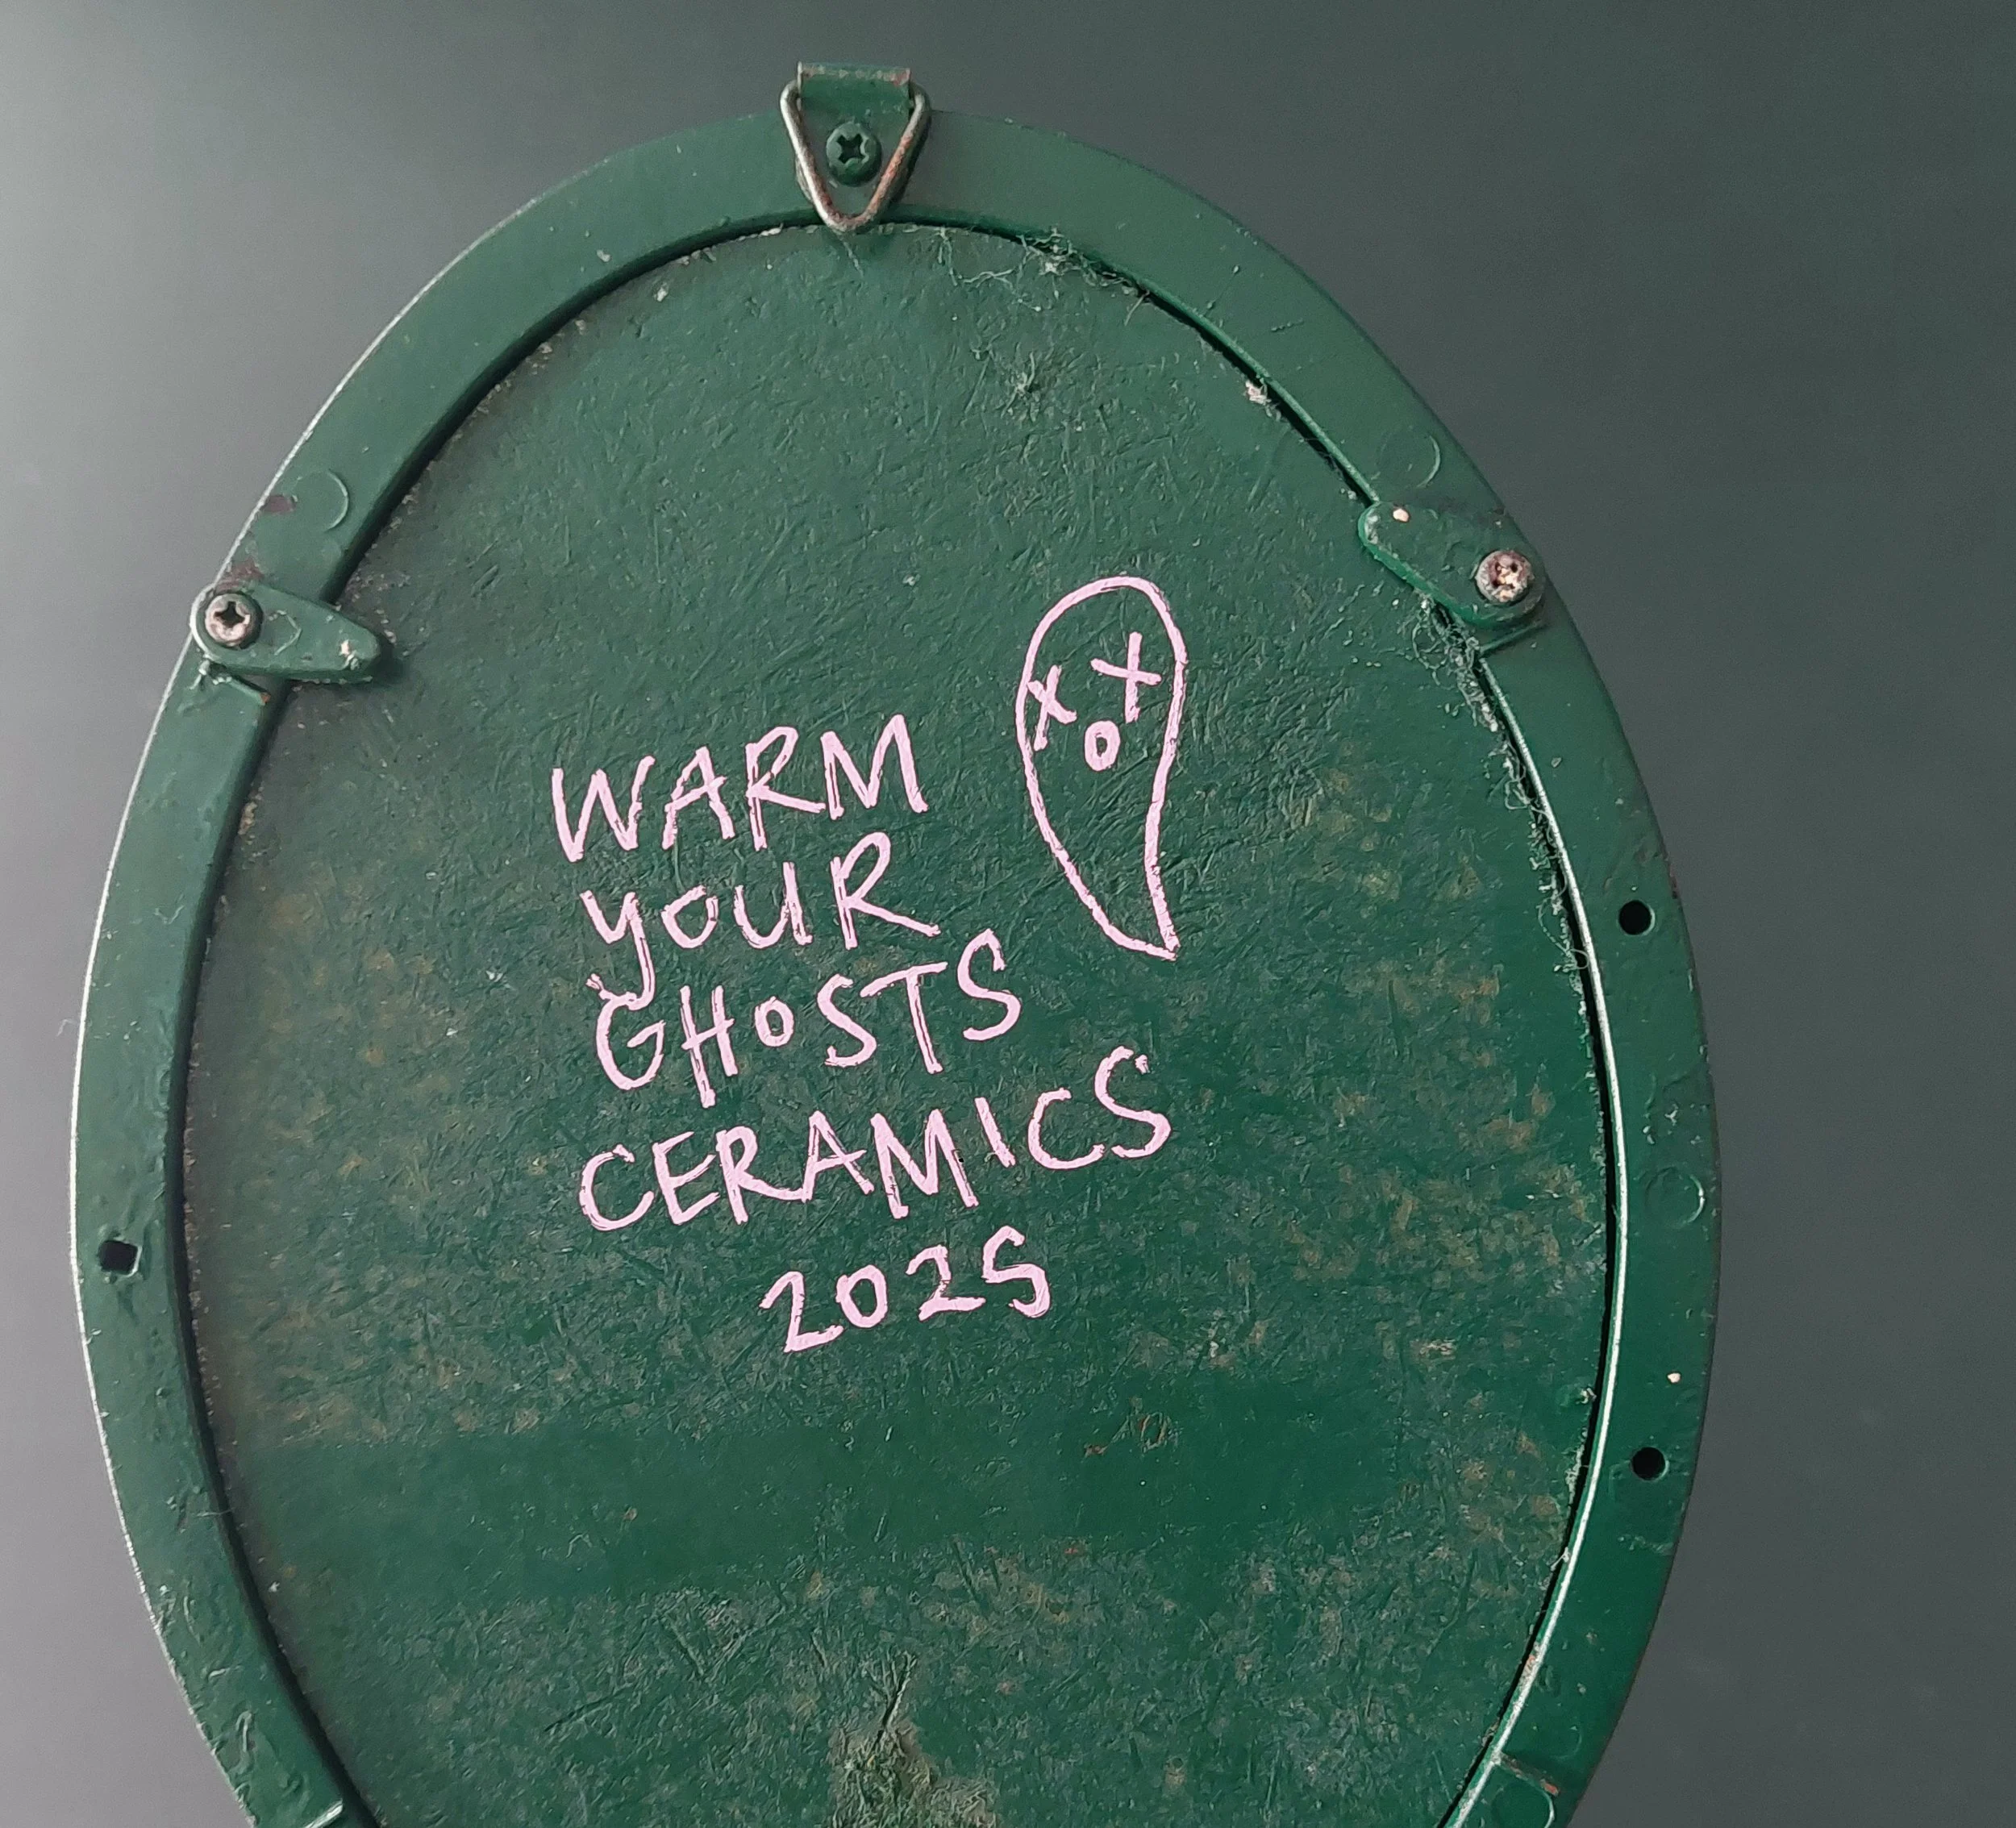 WARM
YOUR
GHOSTS
CERAMICS
2025